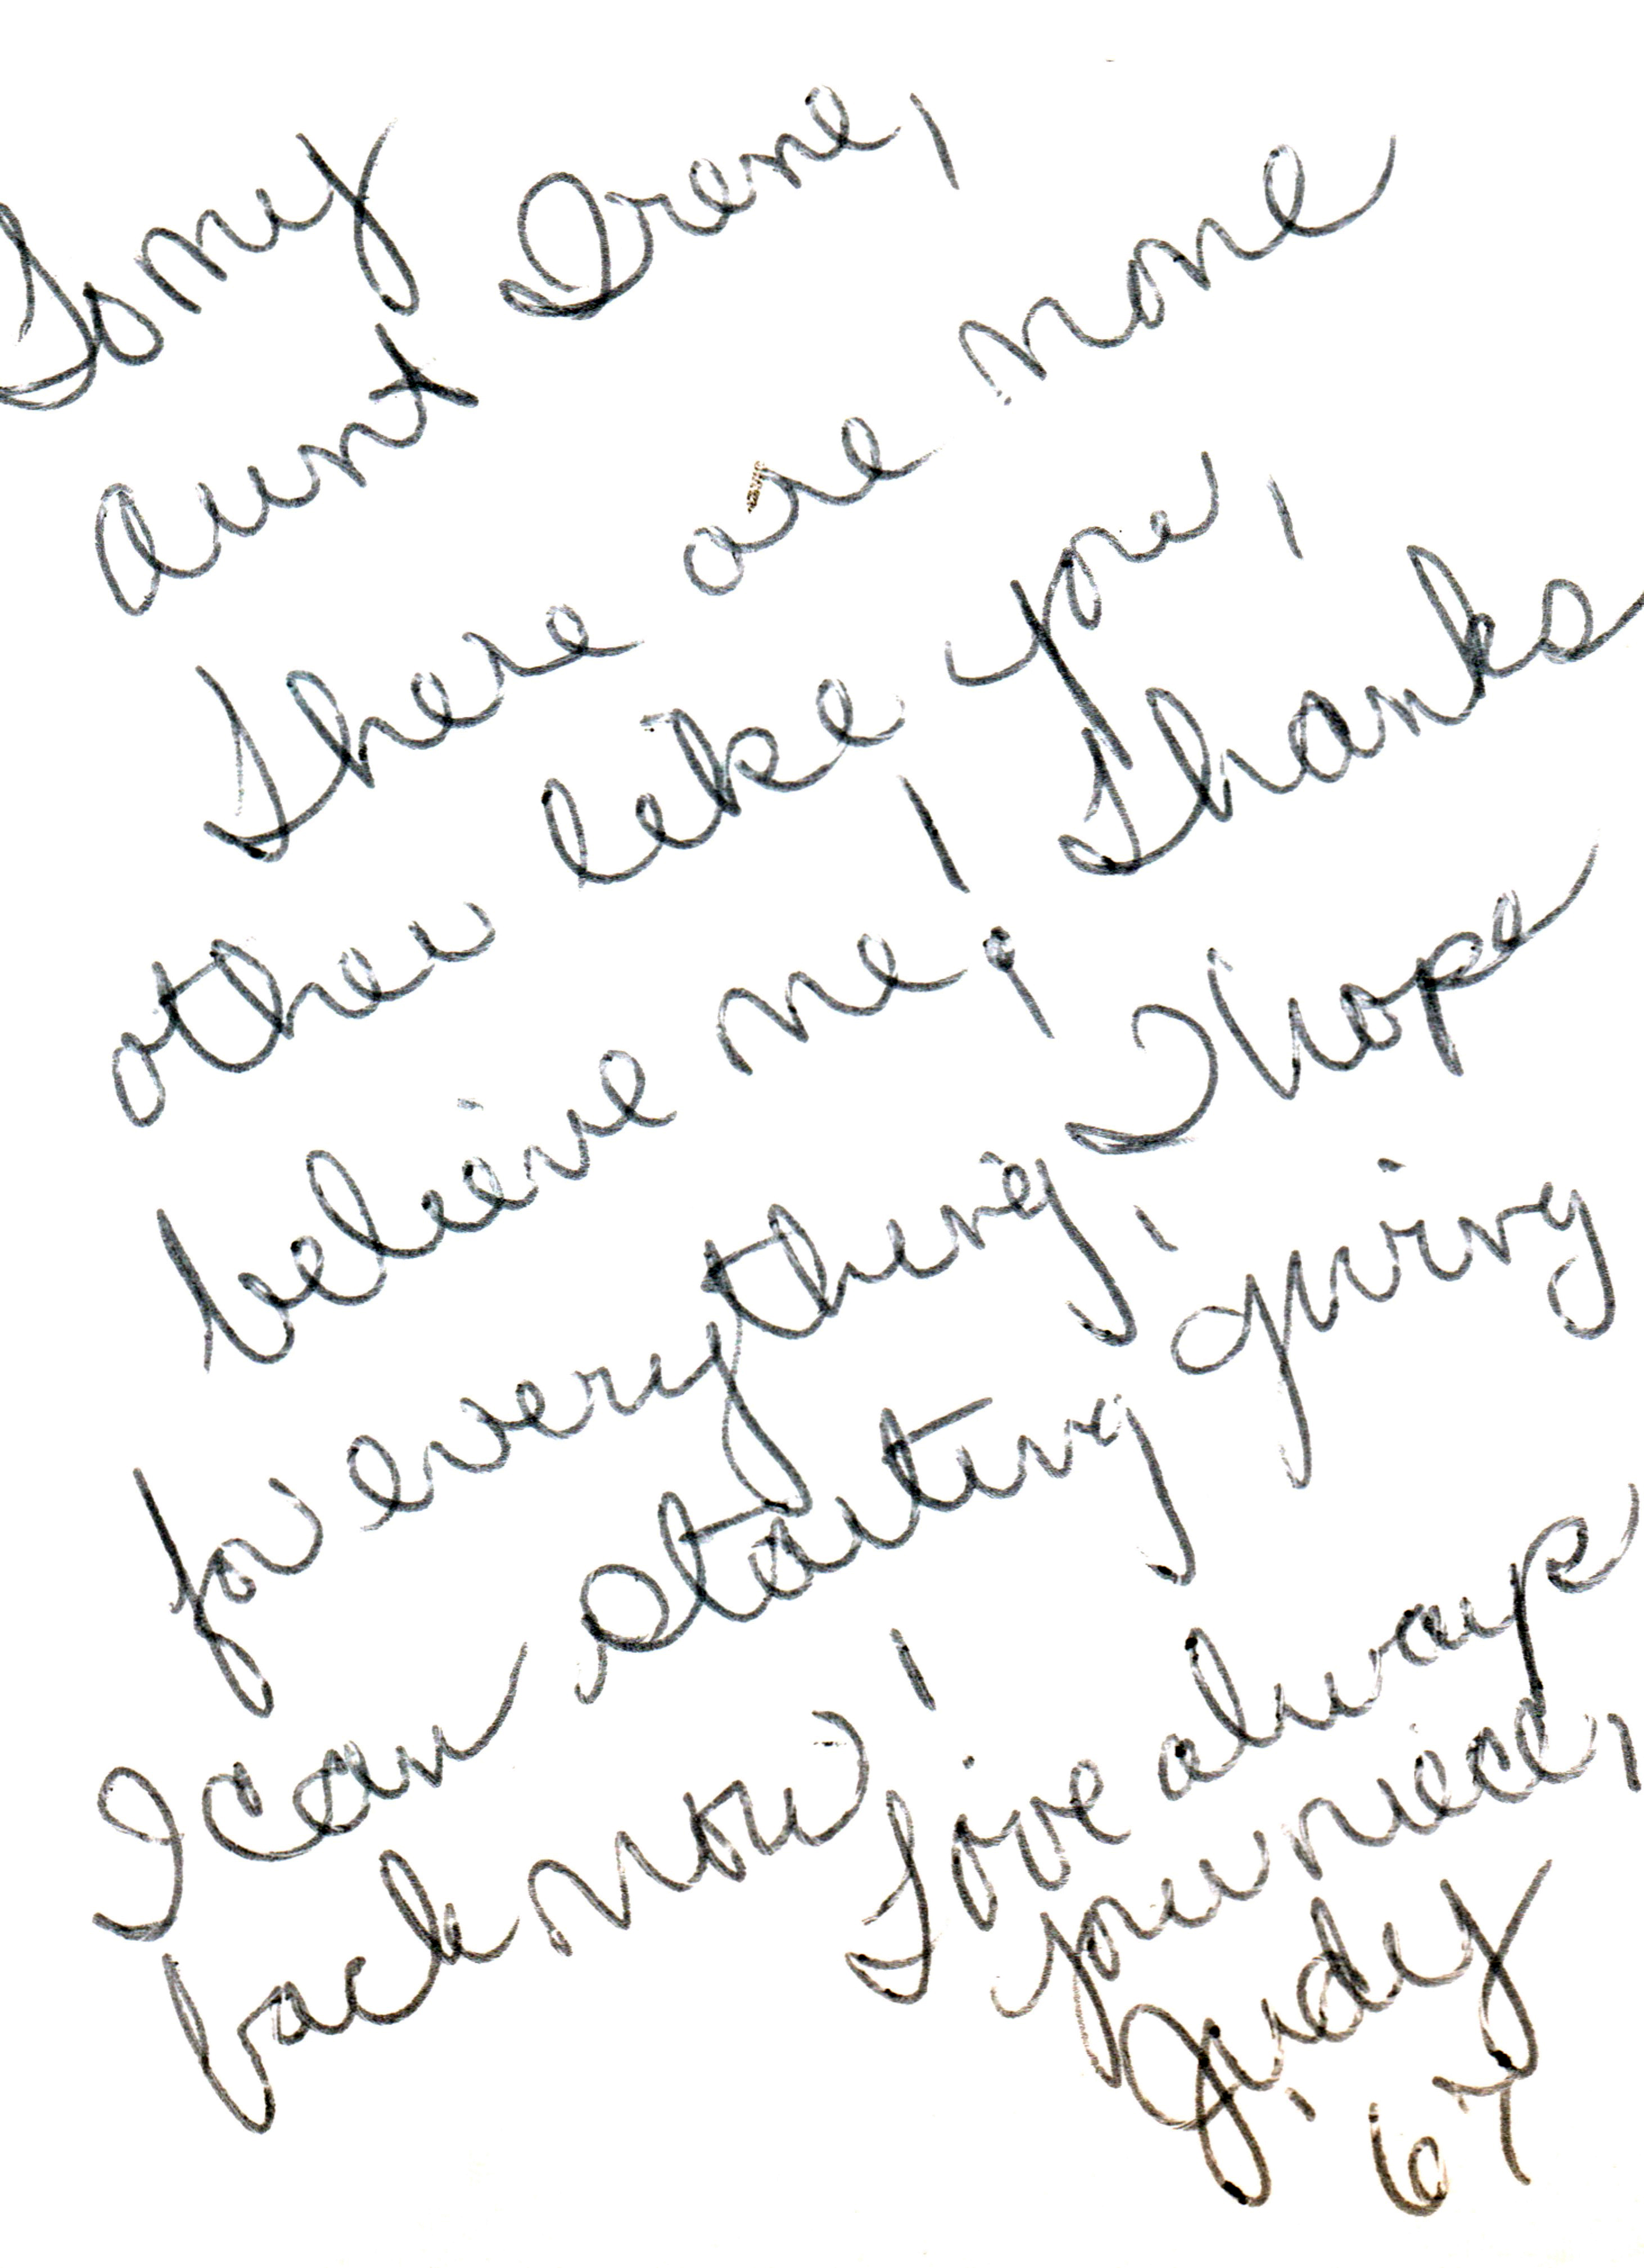 To my
aunt Irene,
There are none
other like you,
believe me! Thanks
for everything, I hope
I can starting giving
back now!
Love always
your niece,
Judy
67